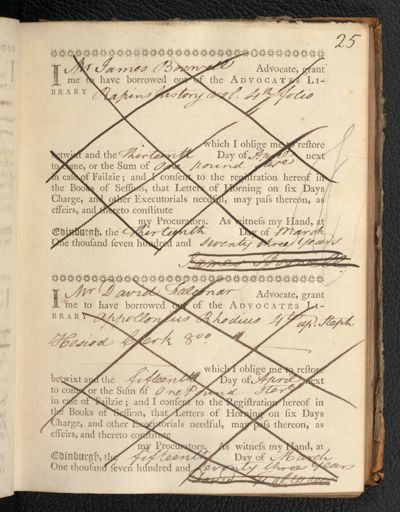 25
I Mr James Boswell Advocate, grant
me to have borrowed out of the ADVOCATES LI-
BRARY Rapins history vol. 4th folio
which I oblige me to restore
betwixt and the thirteenth Day of April next
to come, or the Sum of One pound Ster
in case of Failzie; and I consent to the registration hereof in
the Books of Session, that Letters of Horning on six Days
Charge, and other Executorials needful, may pass thereon, as
effeirs, and thereto constitute
my Procurators. As witness my Hand, at
Edinburgh, the thirteenth Day of March
One thousand seven hundred and seventy three years
James Boswell
I Mr David Advocate, grant
me to have borrowed out of the ADVOCATES LI-
BRARY Appollonius Rhodius 4to ap. Steph
Hesiod Clerk 8vo
which I oblige me to restore
betwixt and the fifteenth Day of April next
to come or the Sum of One Pound Sterg
in case of Failzie; and I consent to the Registration hereof in
the Books of Session, that Letters of Horning on six Days
Charge, and other Executorials needful, may pass thereon, as
effeirs, and thereto constitute
my Procurators. As witness my Hand, at
Edinburgh, the fifteenth Day of March
One thousand seven hundred and seventy three years
David